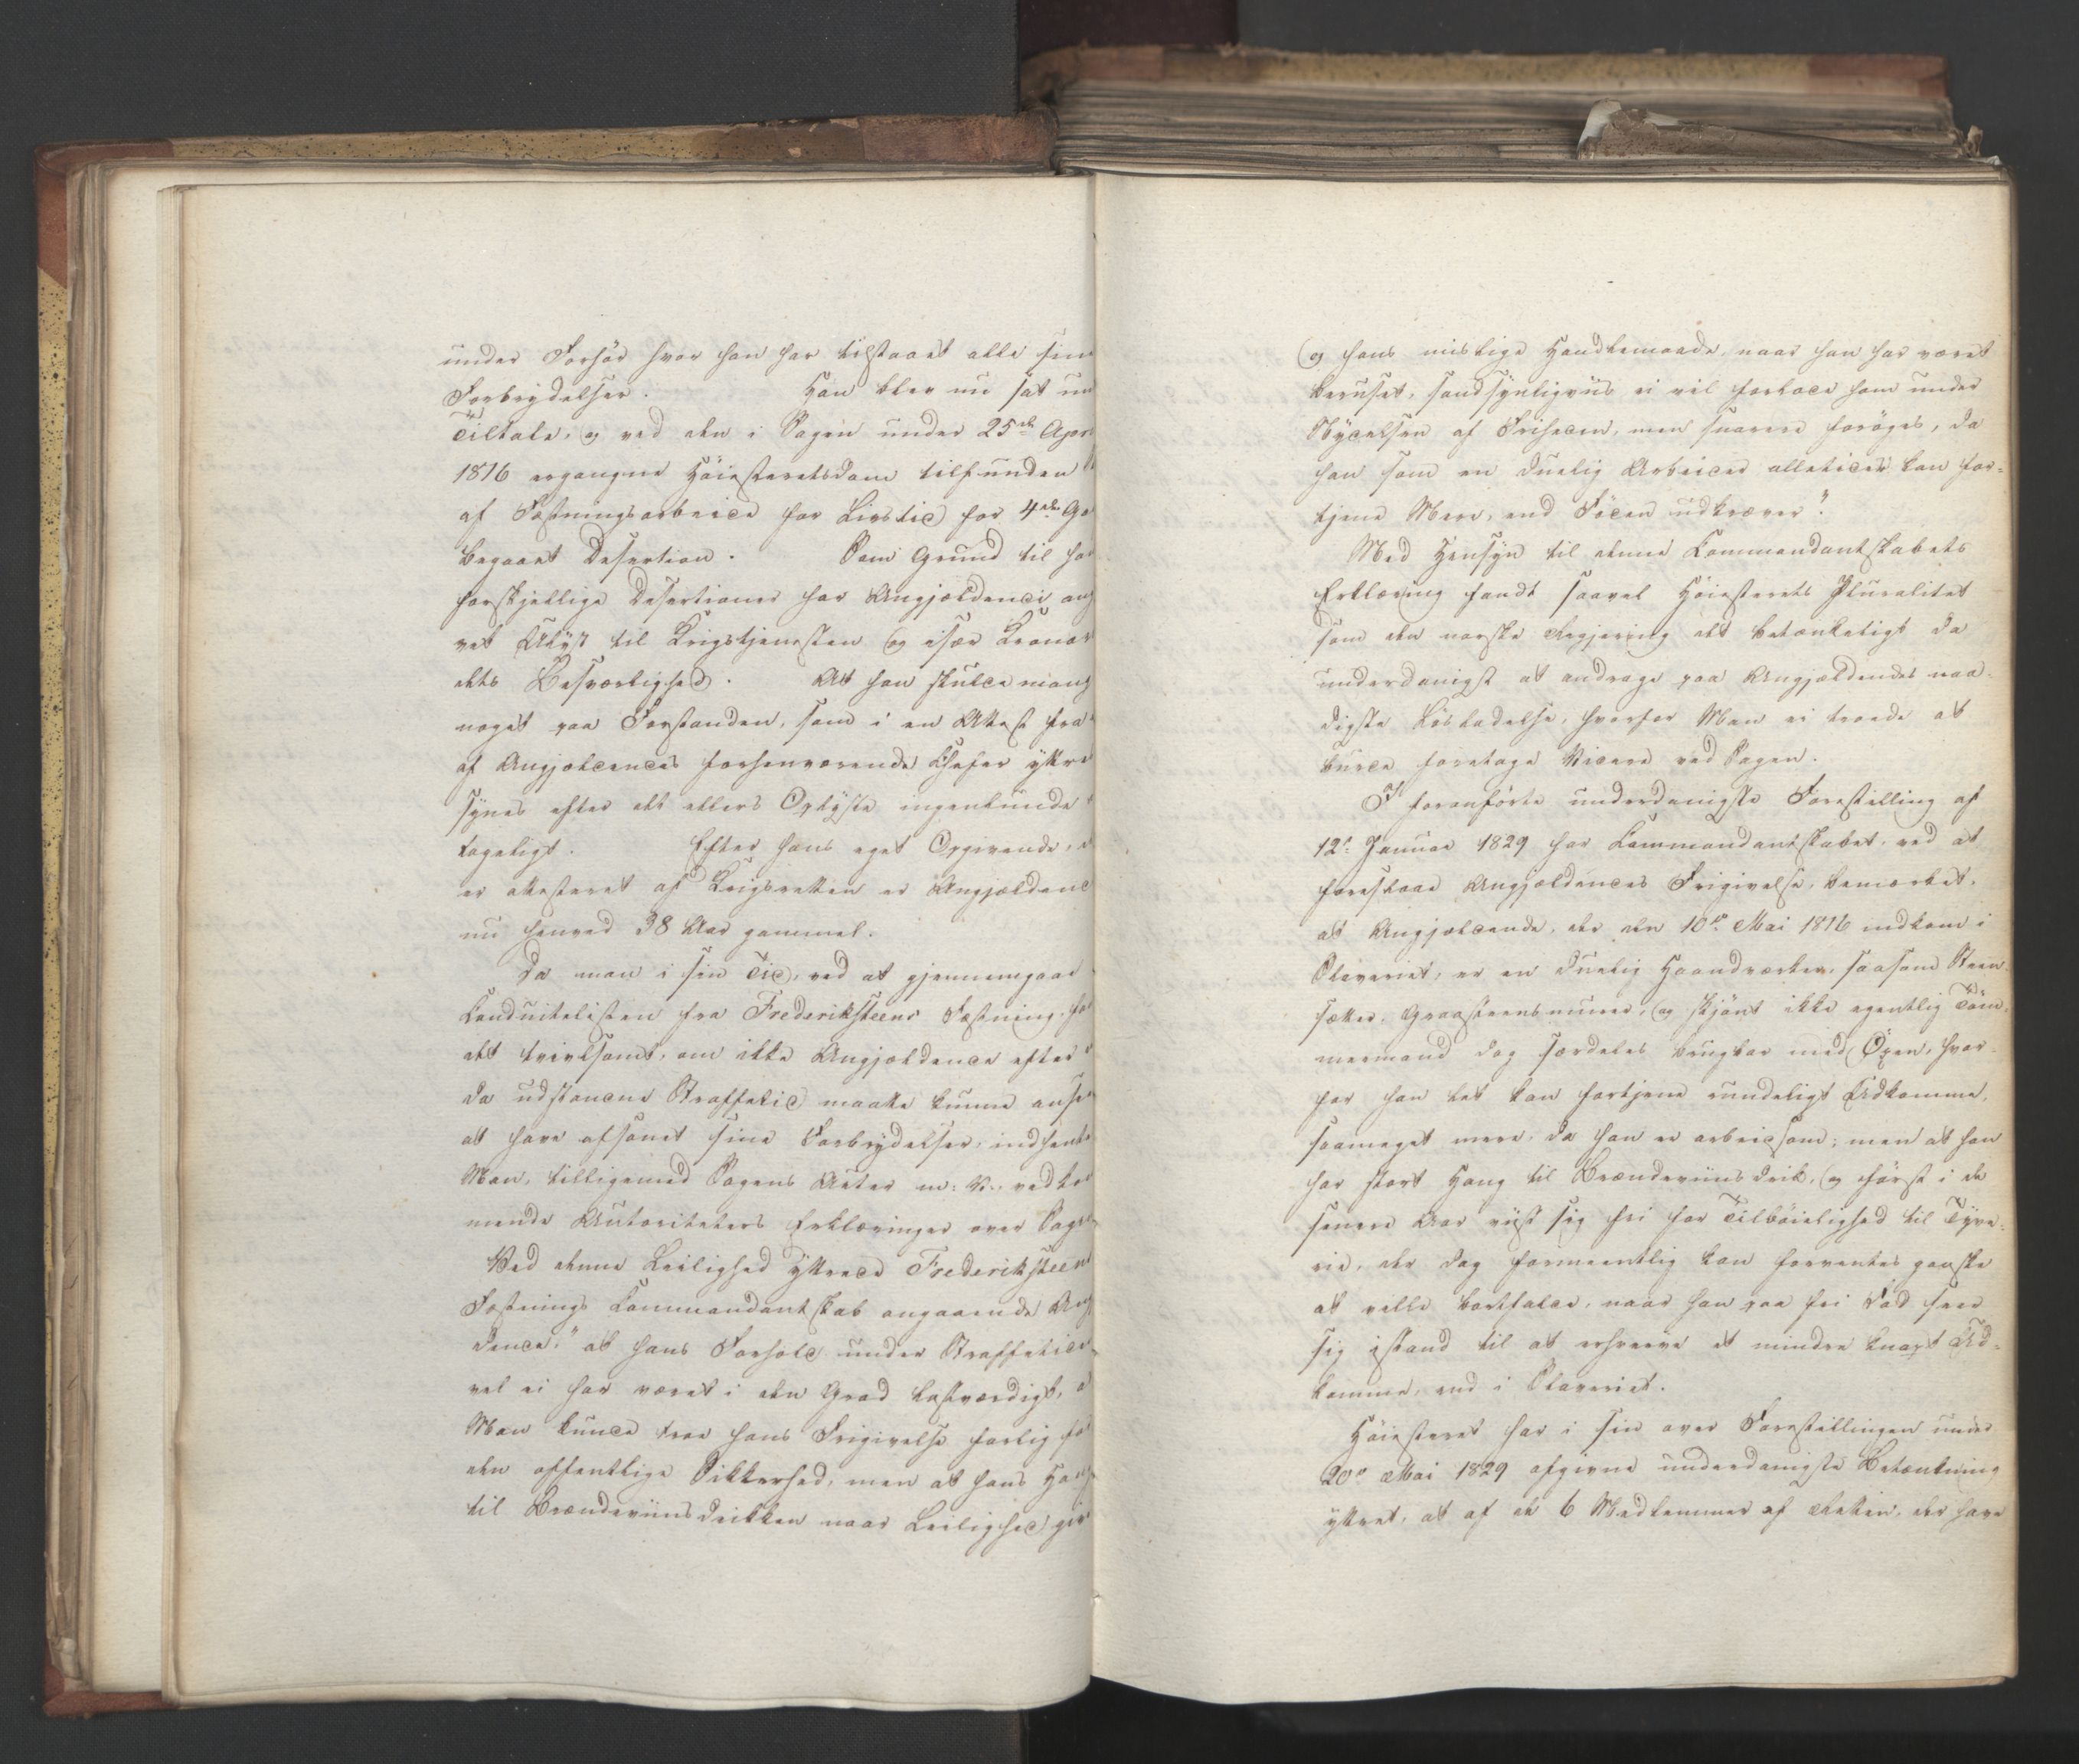 under Forhör hvor han har tilstaaet alle sine
Forbrydelser. Han blev nu sat un
Tiltale, og ved den i Sagen under 25de Apri
1816 ergangne Höiesteretsdom tilfunden
af Fæstningsarbeide paa Livstid for 4de Ga
begaaet Desertion. Som Grund til ha
forskjellige Desertioner har Angjældende ang
vet Ulyst til Krigstjenesten og især
dets Besværlighed. At han skulde mang
noget paa Forstanden, som i en Attest fra
af Angjældendes forhenværende Chefer yttre
synes efter det ellers Oplyste ingenlunde
tageligt. Efter hans eget Opgivende,
er attesteret af Krigsretten er Angjældend
nu henved 38 Aar gammel.
Da man i sin Tid, ved at gjennemgaae
Conduitelisten fra Frederiksteens Fæstning, fa
det tvivlsomt, om ikke Angjældende efter
da udstandne Straffetid maatte kunne anse
at have afsonet sine Forbrydelser, indhente
Man, tilligemed Sagens Acter m: V:, vedkom
mende Autoriteters Erklæringer over Sage
Ved denne Leilighed yttrede Frederiksteens
Fæstnings Commandantskab angaaende Ang
dende: "at hans Forhold under Straffetide
vel ei har været i den Grad lastværdigt, a
Man kunde troe hans Frigivelse farlig fo
den offentlige Sikkerhed, men at hans Hang
til Brændeviinsdrikken naar Leilighed giv
og hans mislige Handlemaade, naar han har været
beruset, sandsynligviis ei vil forlade ham under
Nydelsen af Friheden, men snarere foröges, da
han som en duelig Arbeider alletider kan for-
tjene Mere, end Föden udkræver."
Med Hensyn til denne Commandantskabets
Erklæring fandt saavel Höiesterets Pluralitet
som den norske Regjering det betænkeligt da
underdanigst at andrage paa Angjældendes naa-
digste Lösladelse, hvorfor Man ei troede at
burde foretage Videre ved Sagen.
I foranförte underdanigste Forestilling af
12te Januar 1829 har Commandantskabet, ved at
foreslaae Angjældendes Frigivelse, bemærket,
at Angjældende, der den 10de Mai 1816 indkom i
Slaveriet, er en duelig Haandværker, saasom Steen-
sætter, Graasteensmurer, og skjönt ikke egentlig Töm-
mermand dog særdeles brugbar med Öxen, hvor-
for han let kan fortjene rundeligt Udkomme,
saameget mere, da han er arbeidsom; men at han
har stort Hang til Brændeviinsdrik, og först i de
senere Aar viist sig fri for Tilböielighed til Tyve-
rie, der dog formeentlig kan forventes ganske
at ville bortfalde, naar han paa fri Fod seer
sig istand til at erhverve et mindre knapt Ud-
komme, end i Slaveriet.
Höiesteret har i sin over Forestillingen under
20de Mai 1829 afgivne underdanigste Betænkning
yttret, at af de 6 Medlemmer af Retten, der have